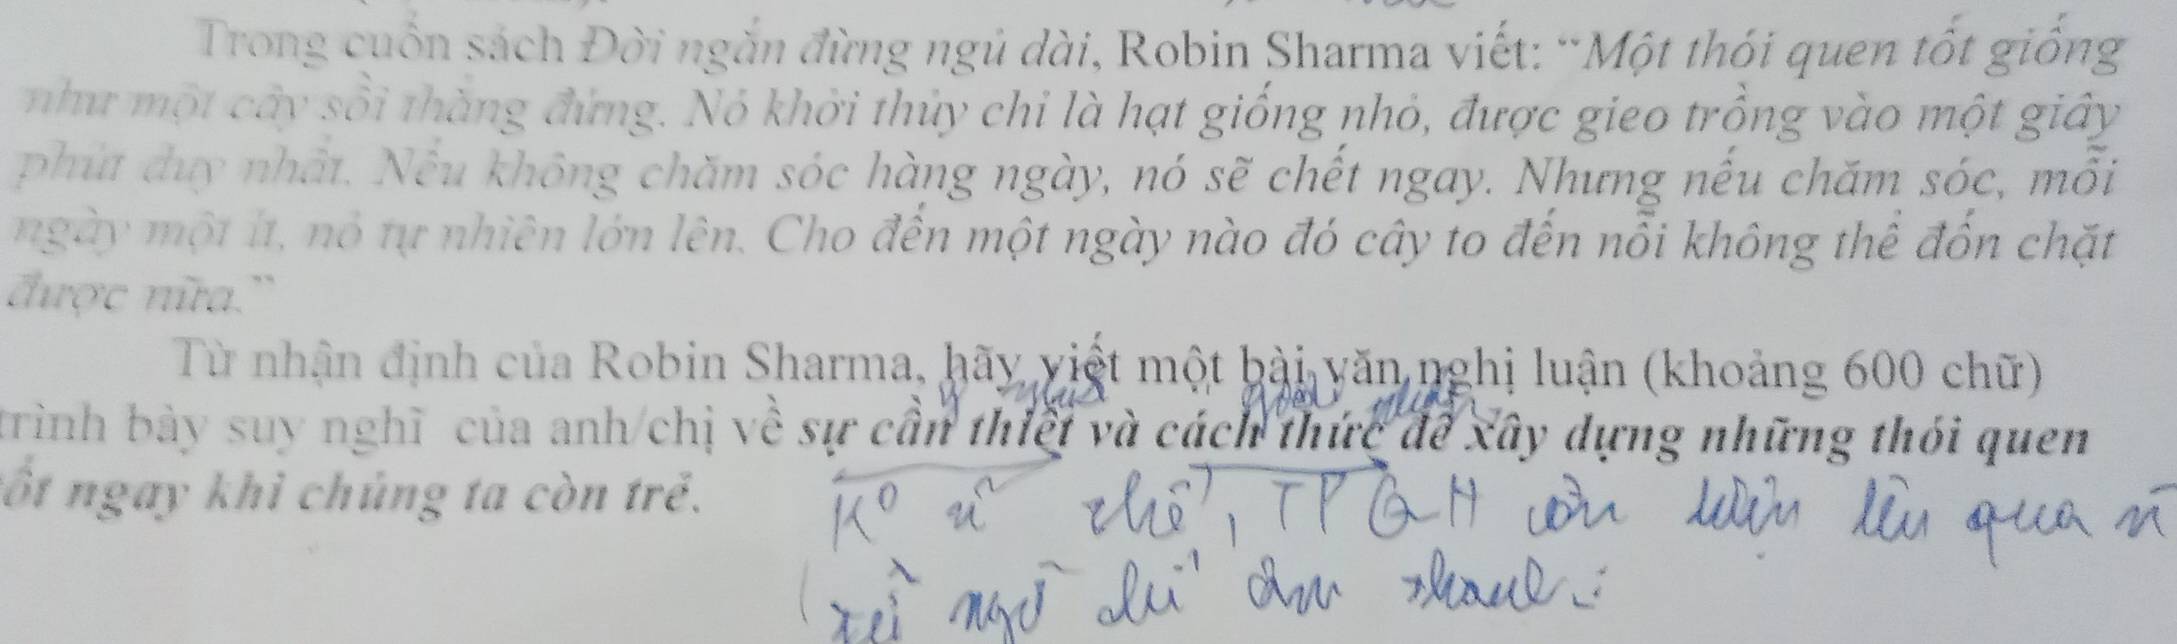 Trong cuốn sách Đời ngắn đừng ngủ dài, Robin Sharma viết: “Một thói quen tốt giống
như một cây sồi thẳng đứng. Nó khởi thủy chỉ là hạt giống nhỏ, được gieo trồng vào một giây
phút duy nhất. Nếu không chăm sóc hàng ngày, nó sẽ chết ngay. Nhưng nếu chăm sóc, mỗi
ngày một ít, nó tự nhiên lớn lên. Cho đến một ngày nào đó cây to đến nỗi không thể đốn chặt
được nữa.”
Từ nhận định của Robin Sharma, hãy viết một bài văn nghị luận (khoảng 600 chữ)
trình bày suy nghĩ của anh/chị về sự cần thiết và cách thức để xây dựng những thói quen
tốt ngay khi chúng ta còn trẻ.
TPGH còn lên qua